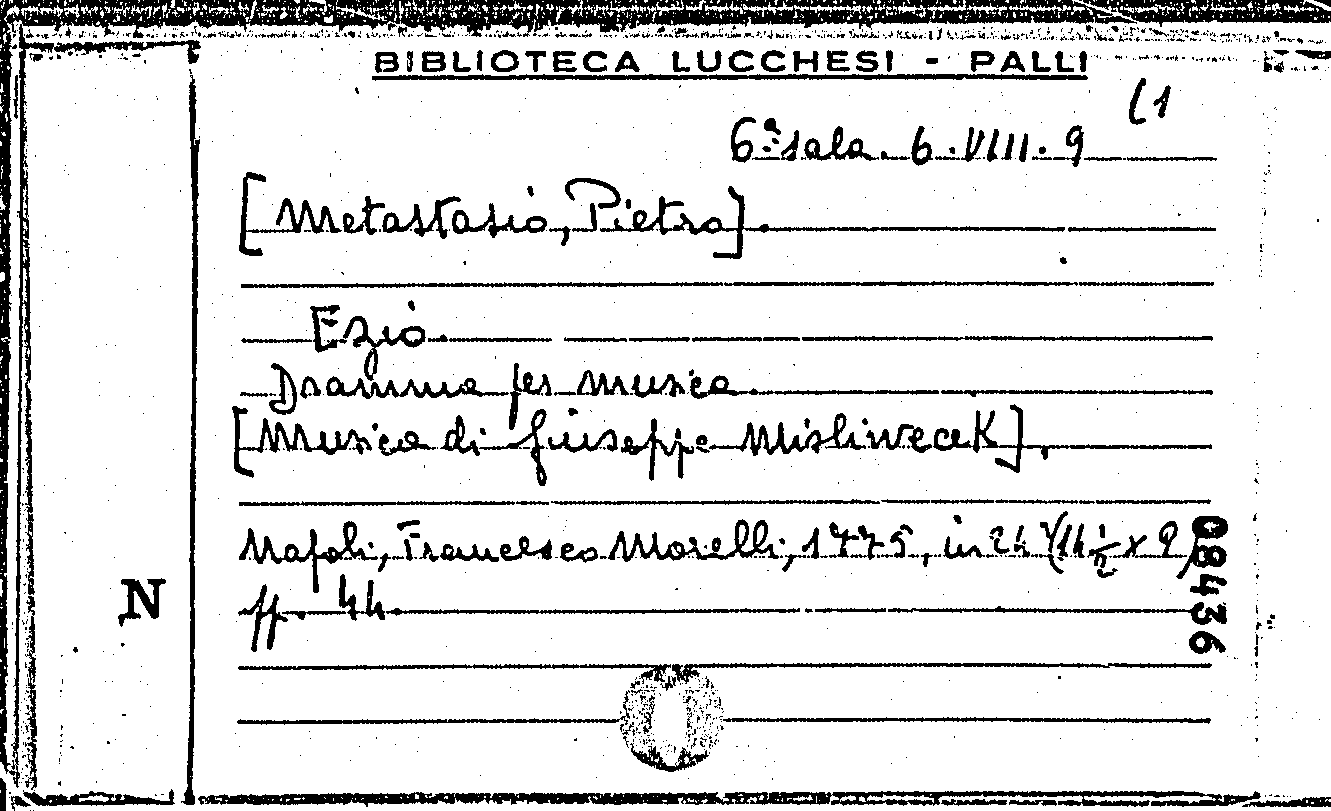 BIBLIOTECA LUCCHESI - PALLI
(1
6ª sala. 6. VIII. 9
[Metastasio, Pietro].
Ezio.
Dramma per musica.
[Musica di Giuseppe MisliweceK].
Napoli, Francesco Morelli, 1775, in 24 (14 1/2 x 9)
pp. 44.
N
08436